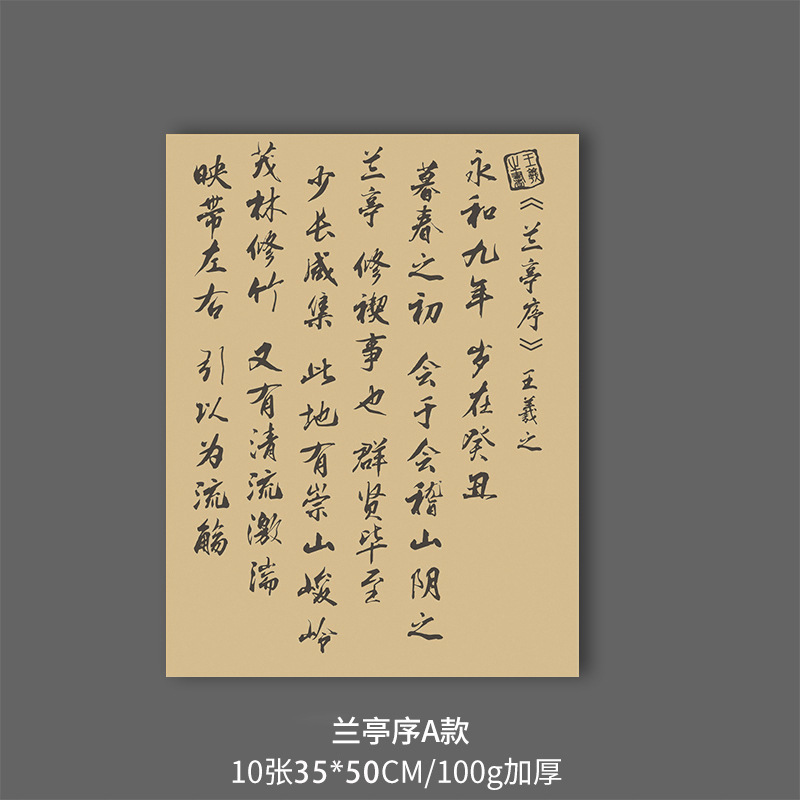 《兰亭序》王羲之
王羲之书
永和九年 岁在癸丑
暮春之初 会于会稽山阴之
兰亭 修禊事也 群贤毕至
少长咸集 此地有崇山峻岭
茂林修竹 又有清流激湍
映带左右 引以为流觞
兰亭序A款
10张35*50CM/100g加厚